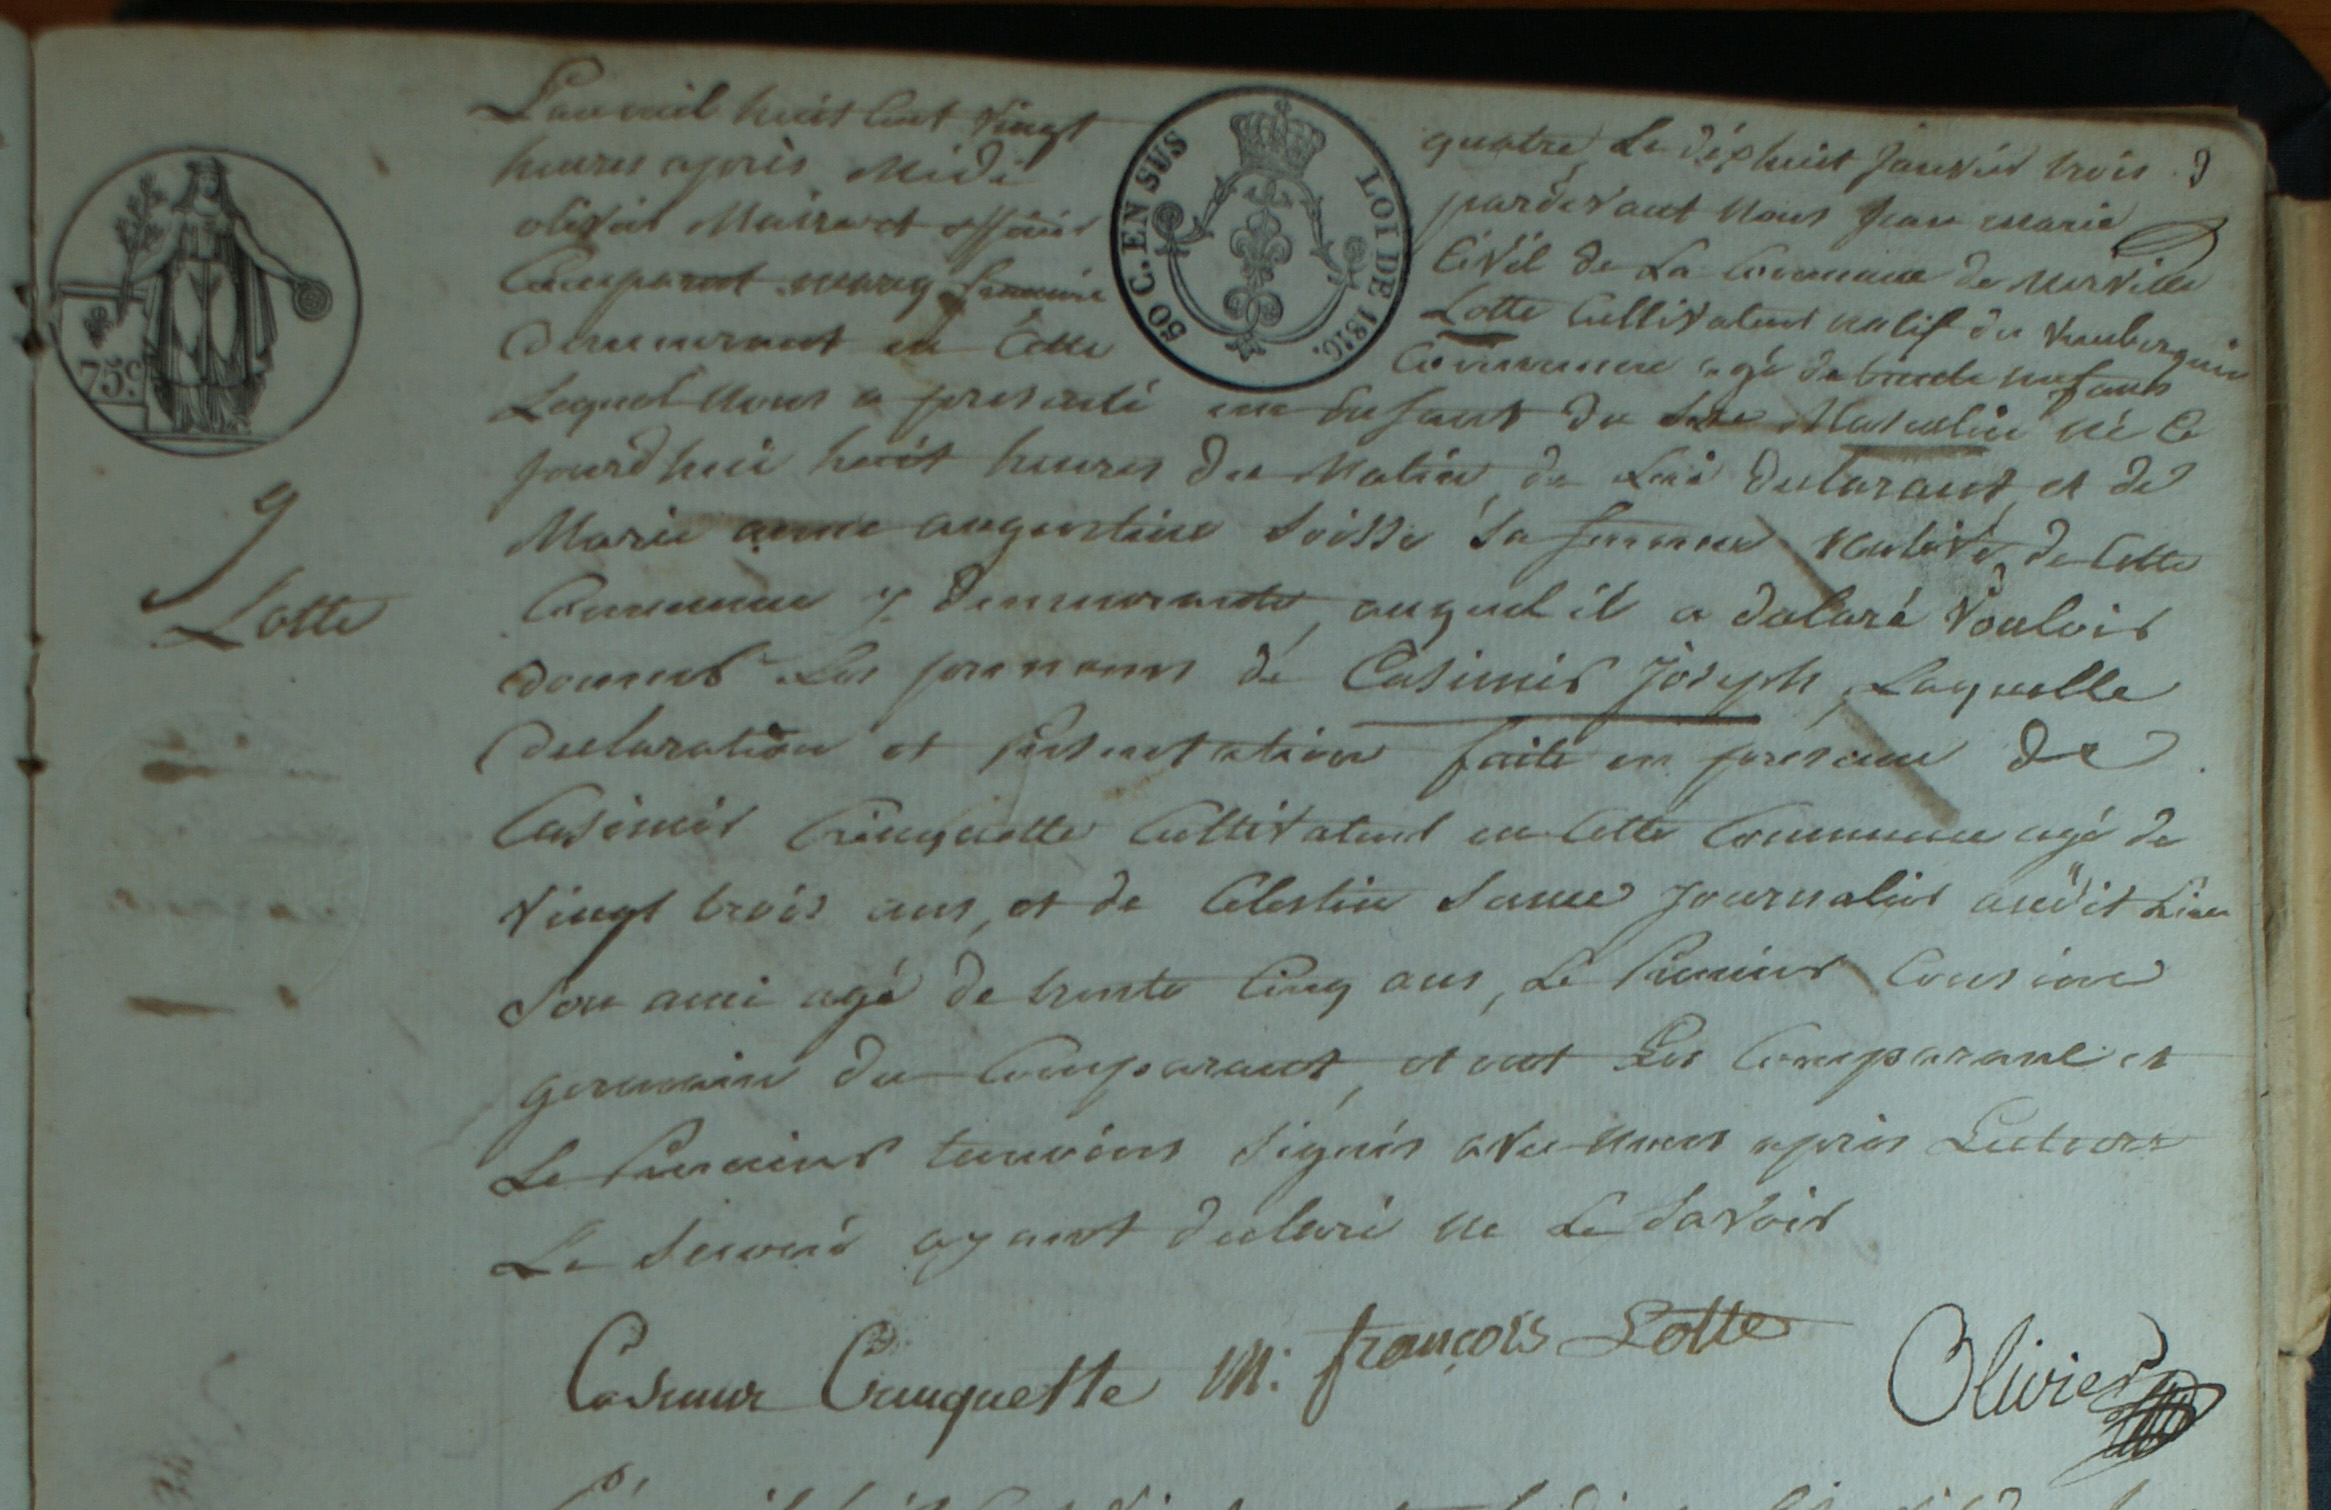 L'an mil huit Cent Vingt quatre Le dix huit Janvier trois
heures après Midi pardevant Nous Jean marie
olivier Maire et officier Civil de La Commune de Merville
Comparut marq francois Lotte Cultivateur natif du
demeurant en Cette Commune agé de trente neuf ans
Lequel Nous a presenté un Enfant du sexe Masculin né Ce
jourdhui huit heures du Matin, de Lui declarant, et de
Marie anne augustine Soisse Sa femme Native de Cette
Commune y demeurante, auquel il a declaré Vouloir
donner Les prenoms de Casimir Joseph, Laquelle
declaration et presentation faite en presence de
Casimir Crinquette Cultivateur en Cette Commune agé de
Vingt trois ans, et de Celestin Journalier audit Lieu
Son ami agé de trente Cinq ans, Le Premier Cousin
germain du Comparant, et ont Les Comparant et
Le Premier temoins Signés avec nous après Lecture
Le Second ayant declaré ne Le Savoir
Casimir Crinquette M: françois Lotte
Olivier
9
Lotte
75c.
50 C. EN SUS
LOI DE 1816.